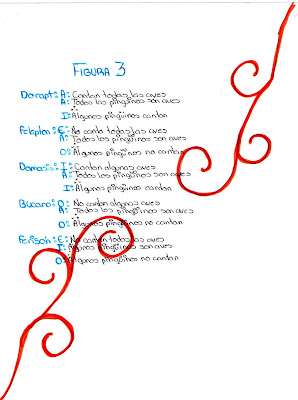 FIGURA 3
Darapti: A: Cantan todas las aves
A: Todos los pingüinos son aves
∴
I: Algunos pingüinos cantan
Felapton: E: No canta todas las aves
A: Todos los pingüinos son aves
∴
O: Algunos pingüinos no cantan
Damasis: I: Cantan algunas aves
A: Todos los pingüinos son aves
∴
I: Algunos pingüinos cantan
Bucaro: O: No cantan algunas aves
A: Todos los pingüinos son aves
O: Algunos pingüinos no cantan
Ferison: E: No cantan todas las aves
I: Algunos pingüinos son aves
O: Algunos pingüinos no cantan